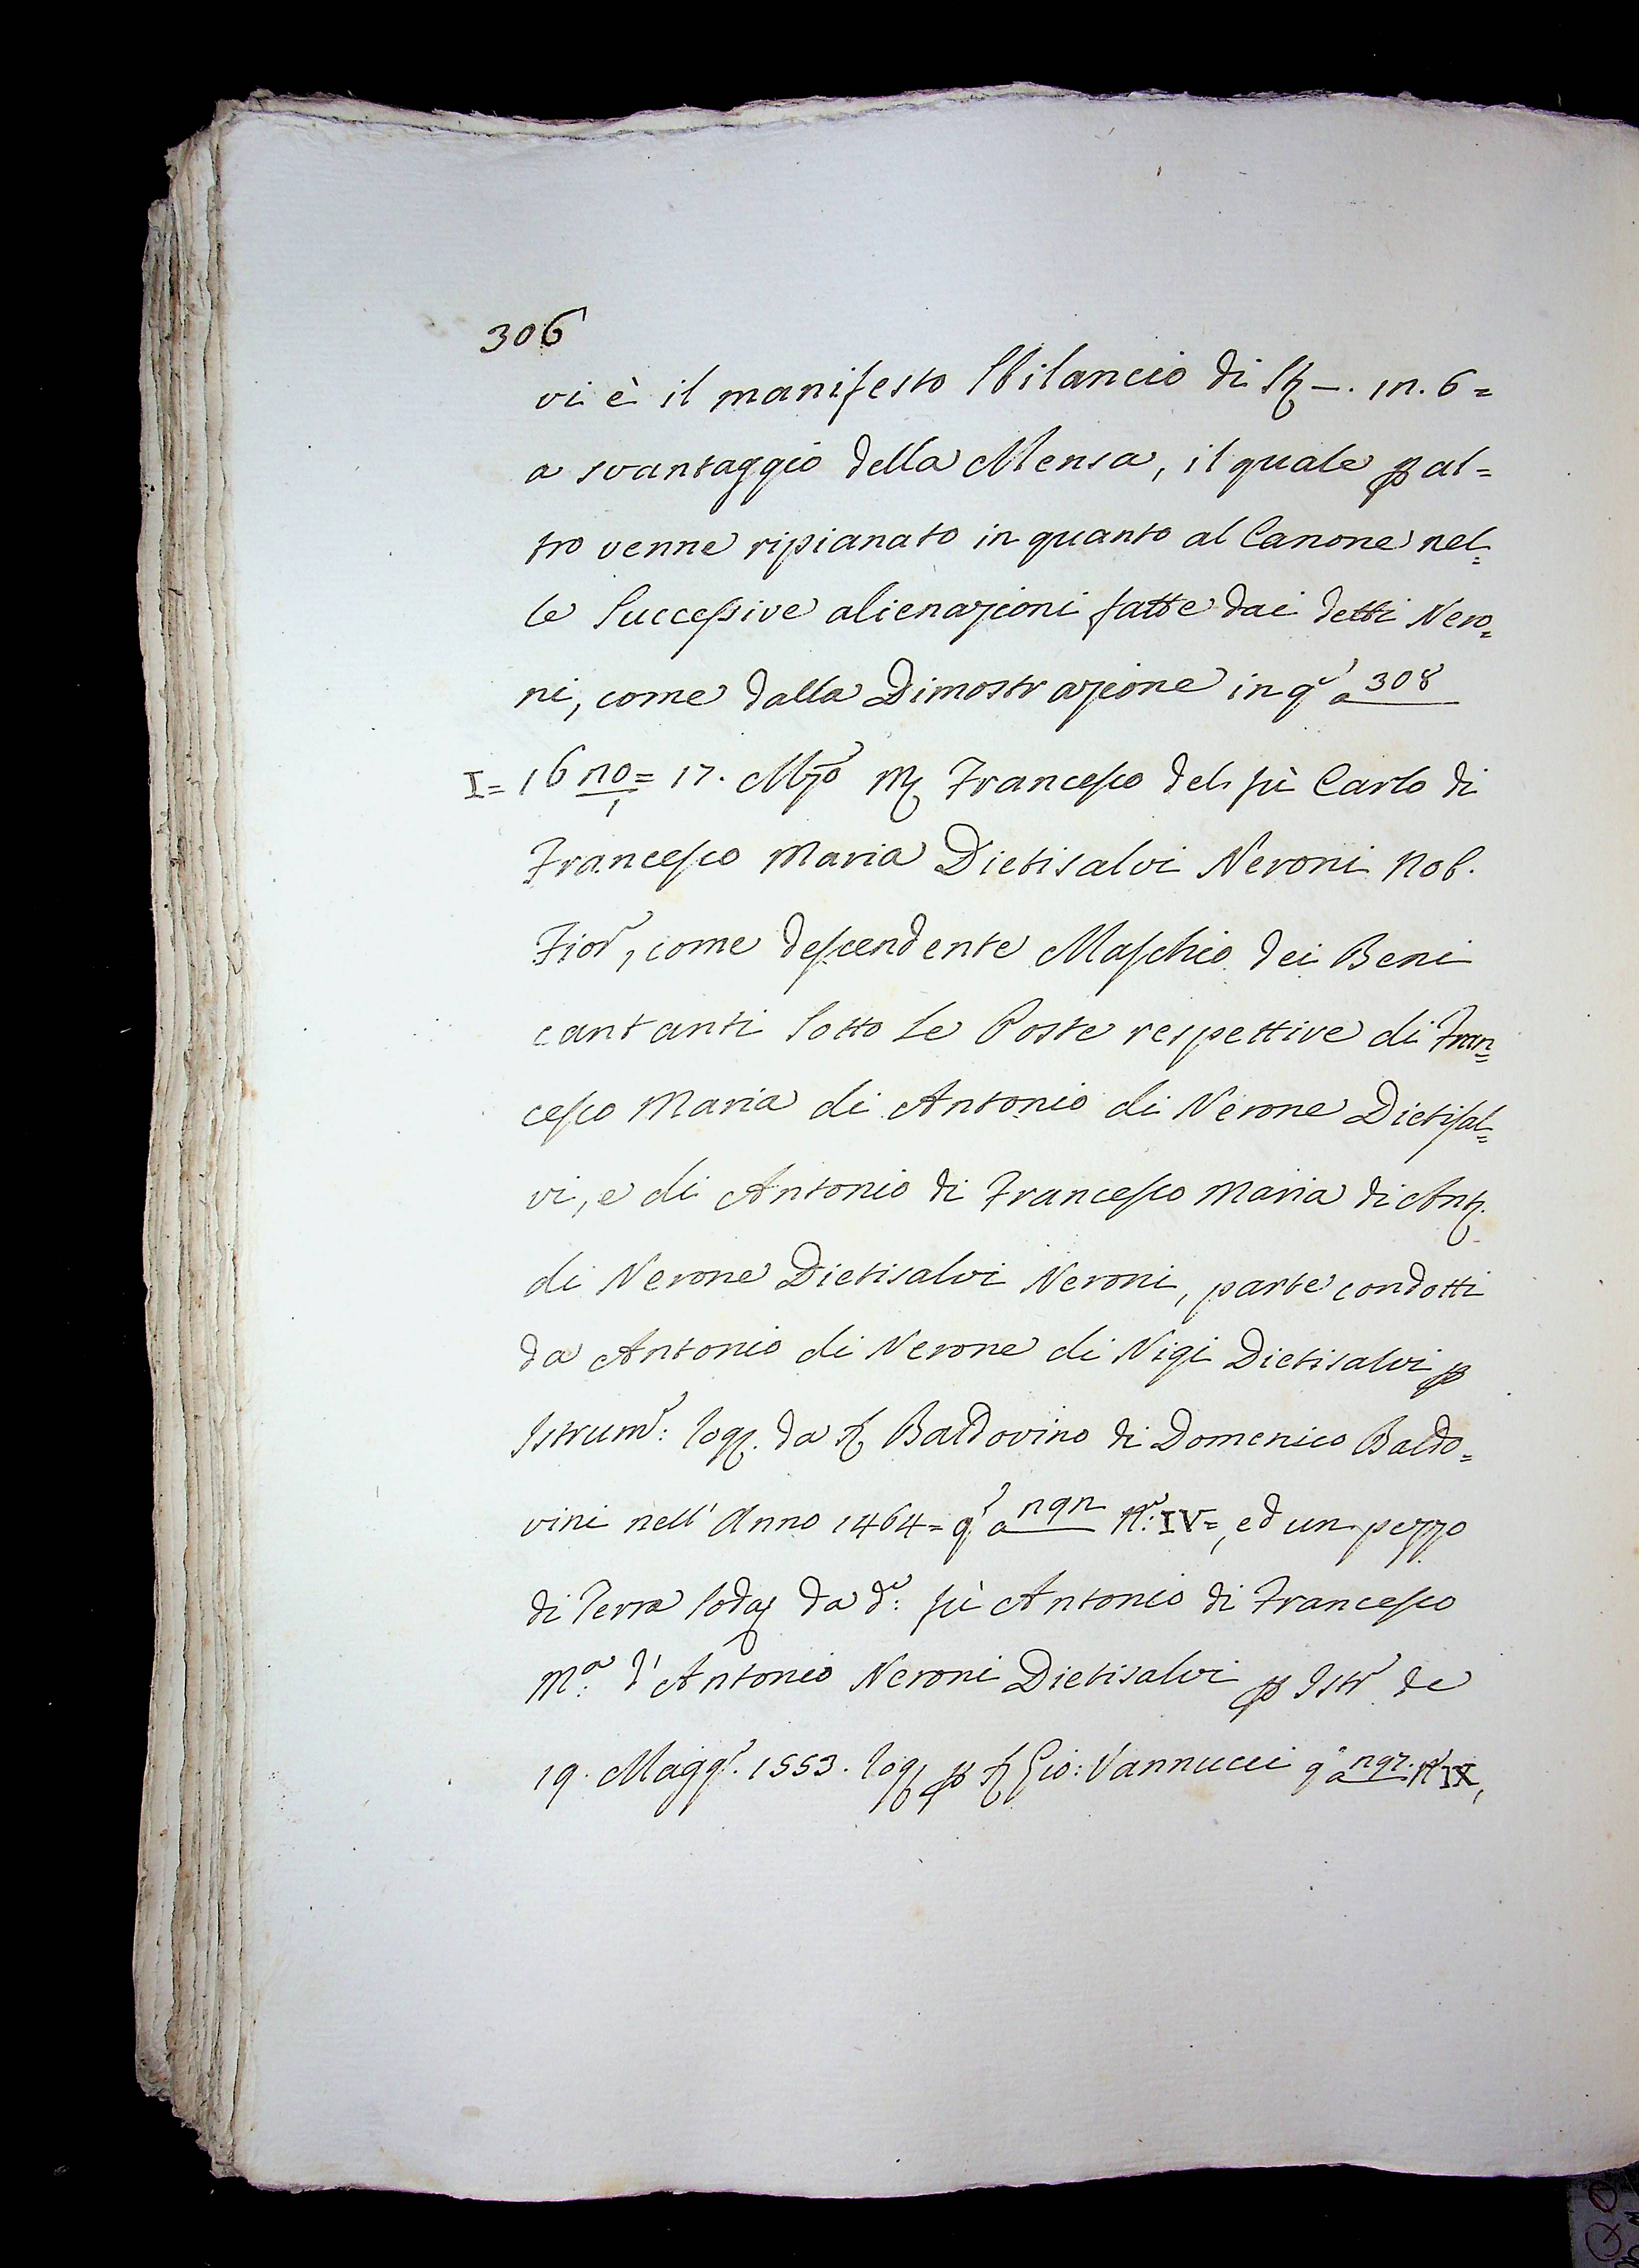 306
vi è il manifesto Sbilancio di St. —. in. 6=
a svantaggio della Mensa, il quale p al=
tro venne ripianato in quanto al Canone nel=
le Successive alienazioni fatte dai detti Nero=
ni, come dalla Dimostrazione in q.º a 308
I= 16 = 17. Mzo Francesco del fù Carlo di
Francesco Maria Dietisalvi Neroni Nob.
Fior.º, come descendente Maschio dei Beni
cantanti Sotto Le Poste respettive di Fran=
cesco Maria di Antonio di Nerone Dietisal=
vi, e di Antonio di Francesco Maria di Ant.
di Nerone Dietisalvi Neroni, parte condotti
da Antonio di Nerone di Nigi Dietisalvi p
Istrum.º: rog. da S. Baldovino di Domenico Baldo=
vini nell' Anno 1464= q.º a N.º: IV=, ed un pezzo
di Terra Soda da d.º: fù Antonio di Francesco
M.ª: d'Antonio Neroni Dietisalvi p Istr.º de
19. Magg.º. 1553. rog. p S. Gio: Vannucci q.º a N.º IX,